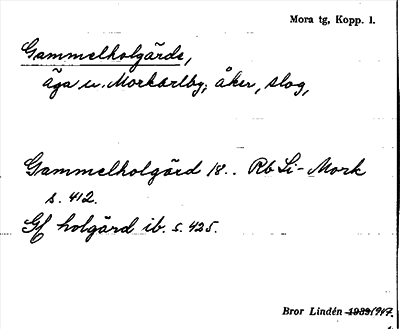 Mora tg, Kopp. l.
Gammelholgärde,
äga u. Morkarlby; åker, slog,
Gammelholgärd 18.. Rb Li-Mork
s. 412.
Gf holgärd ib. s. 425.
Bror Lindén 1939 1947.